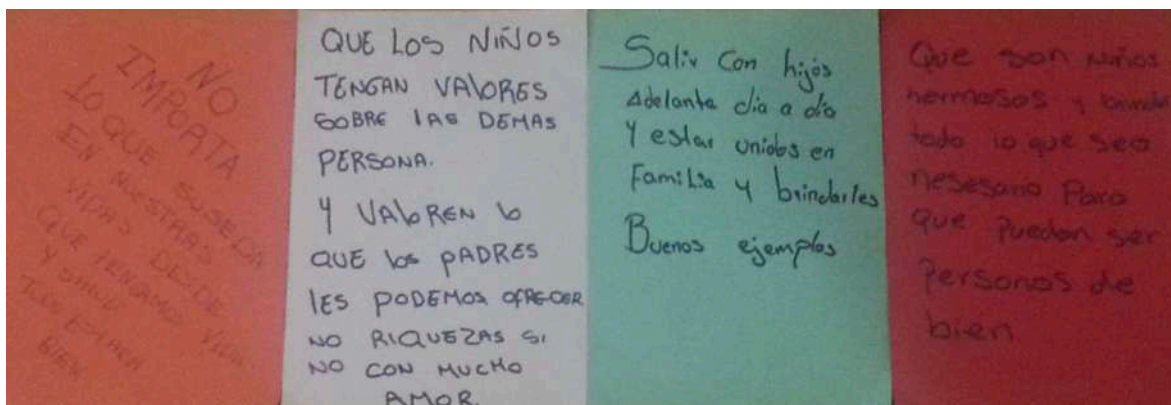 NO
IMPORTA
LO QUE SUSEDA
EN NUESTRAS
VIDAS DESDE
QUE TENGAMOS VIDA
Y SALUD
TODO ESTARA
BIEN
QUE LOS NIÑOS
TENGAN VALORES
SOBRE LAS DEMAS
PERSONA.
Y VALOREN lo
QUE los PADRES
lES PODEMOS OFRECER
NO RIQUEZAS SI
NO CON MUCHO
AMOR.
Salir Con hijos
Adelante dia a día
Y estar unidos en
Familia y brindarles
Buenos ejemplos
Que son niños
hermosos y brindar
todo lo que sea
nesesario Para
que Puedan ser
Personas de
bien